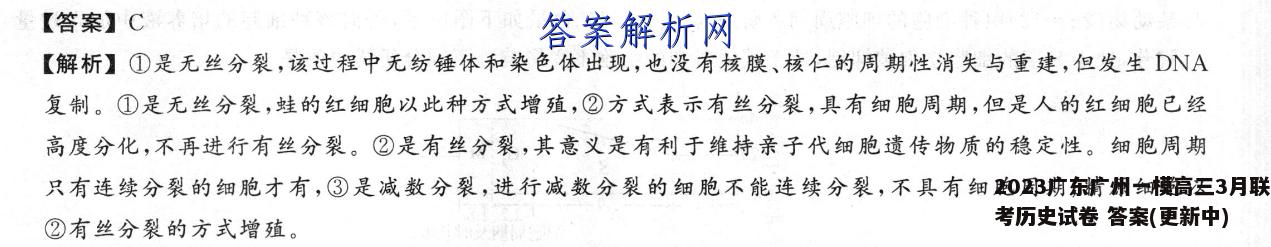 【答案】C
答案解析网
【解析】①是无丝分裂,该过程中无纺锤体和染色体出现,也没有核膜、核仁的周期性消失与重建,但发生 DNA
复制。①是无丝分裂,蛙的红细胞以此种方式增殖,②方式表示有丝分裂,具有细胞周期,但是人的红细胞已经
高度分化,不再进行有丝分裂。②是有丝分裂,其意义是有利于维持亲子代细胞遗传物质的稳定性。细胞周期
只有连续分裂的细胞才有,③是减数分裂,进行减数分裂的细胞不能连续分裂,不具有细
2023广东广州一模高三3月联
考历史试卷 答案(更新中)
②有丝分裂的方式增殖。